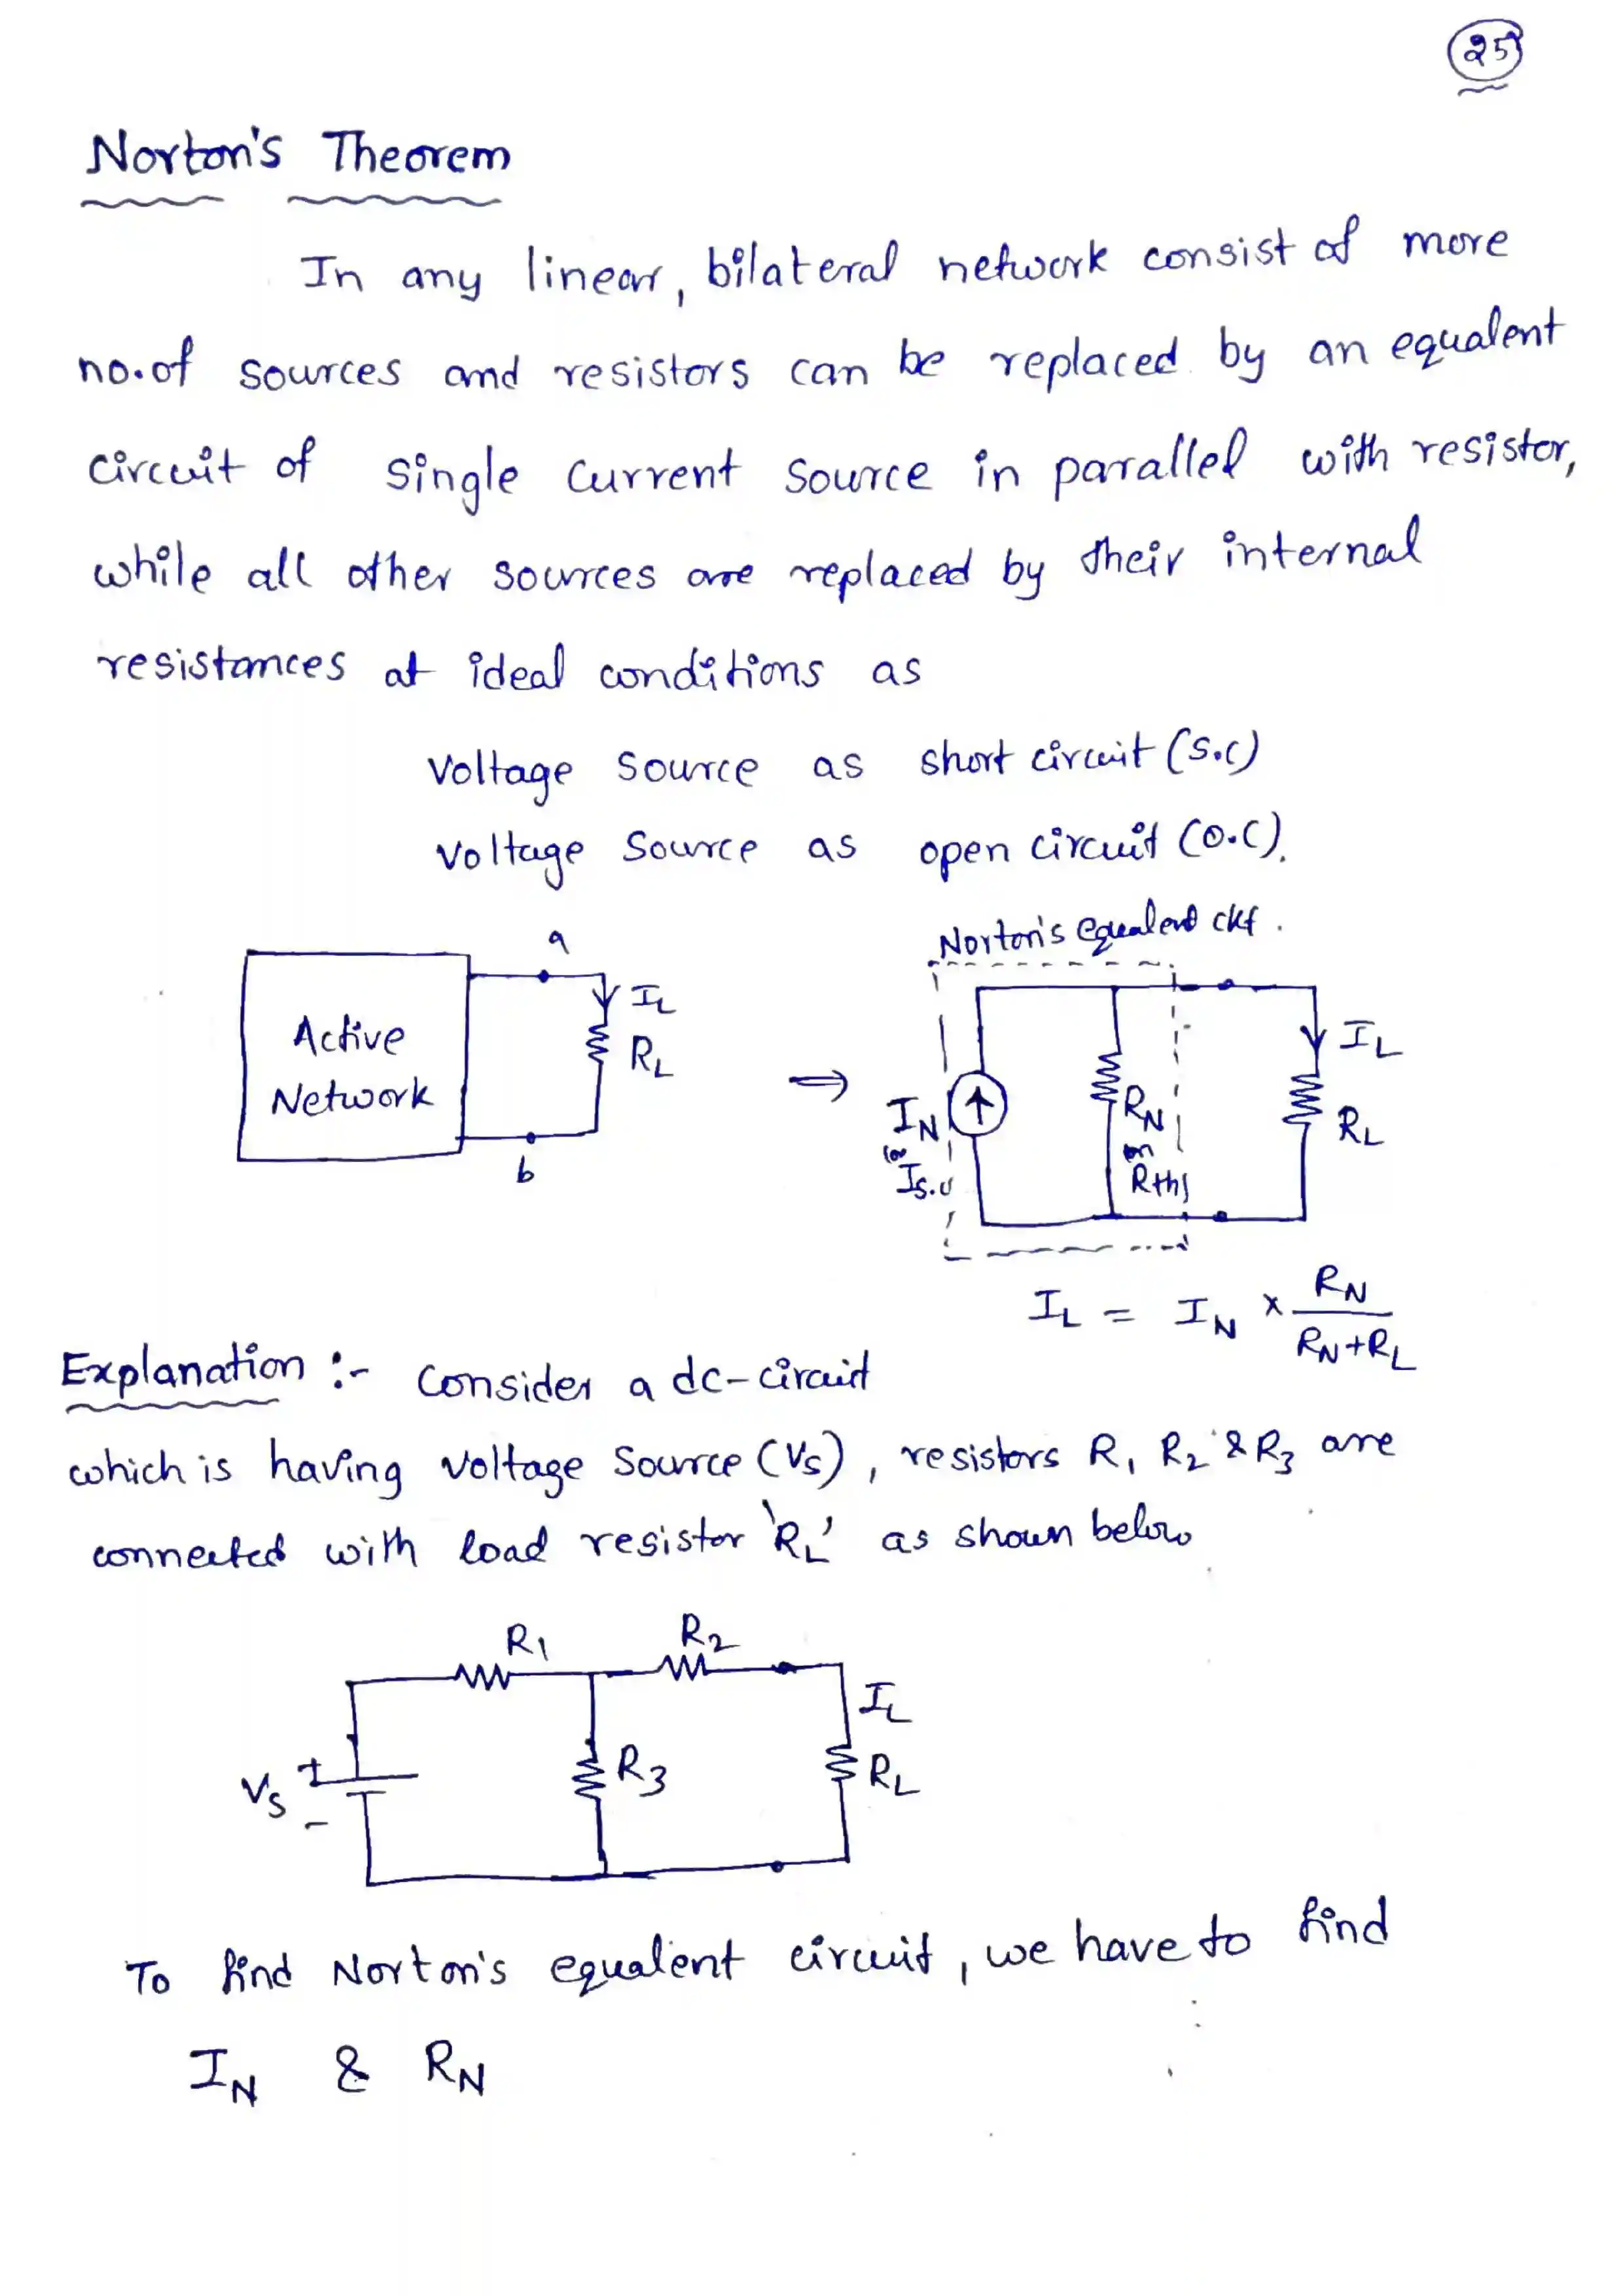 25
Norton's Theorem
In any linear, bilateral network consist of more
no.of sources and resistors can be replaced by an equalent
circuit of single current source in parallel with resistor,
while all other sources are replaced by their internal
resistances at ideal conditions as
Voltage source as short circuit (S.C)
Voltage source as open circuit (O.C).
Norton's equalent ckt.
a
IL
RL
Active
Network
b
⇒
IN
(or
Is.c
RN
or
Rth
IL
RL
IL = IN × RN
RN+RL
Explanation :- Consider a dc-circuit
which is having voltage source (Vs), resistors R1 R2 & R3 are
connected with load resistor 'RL' as shown below
R1 R2
IL
Vs + - R3 RL
To find Norton's equalent circuit, we have to find
IN & RN